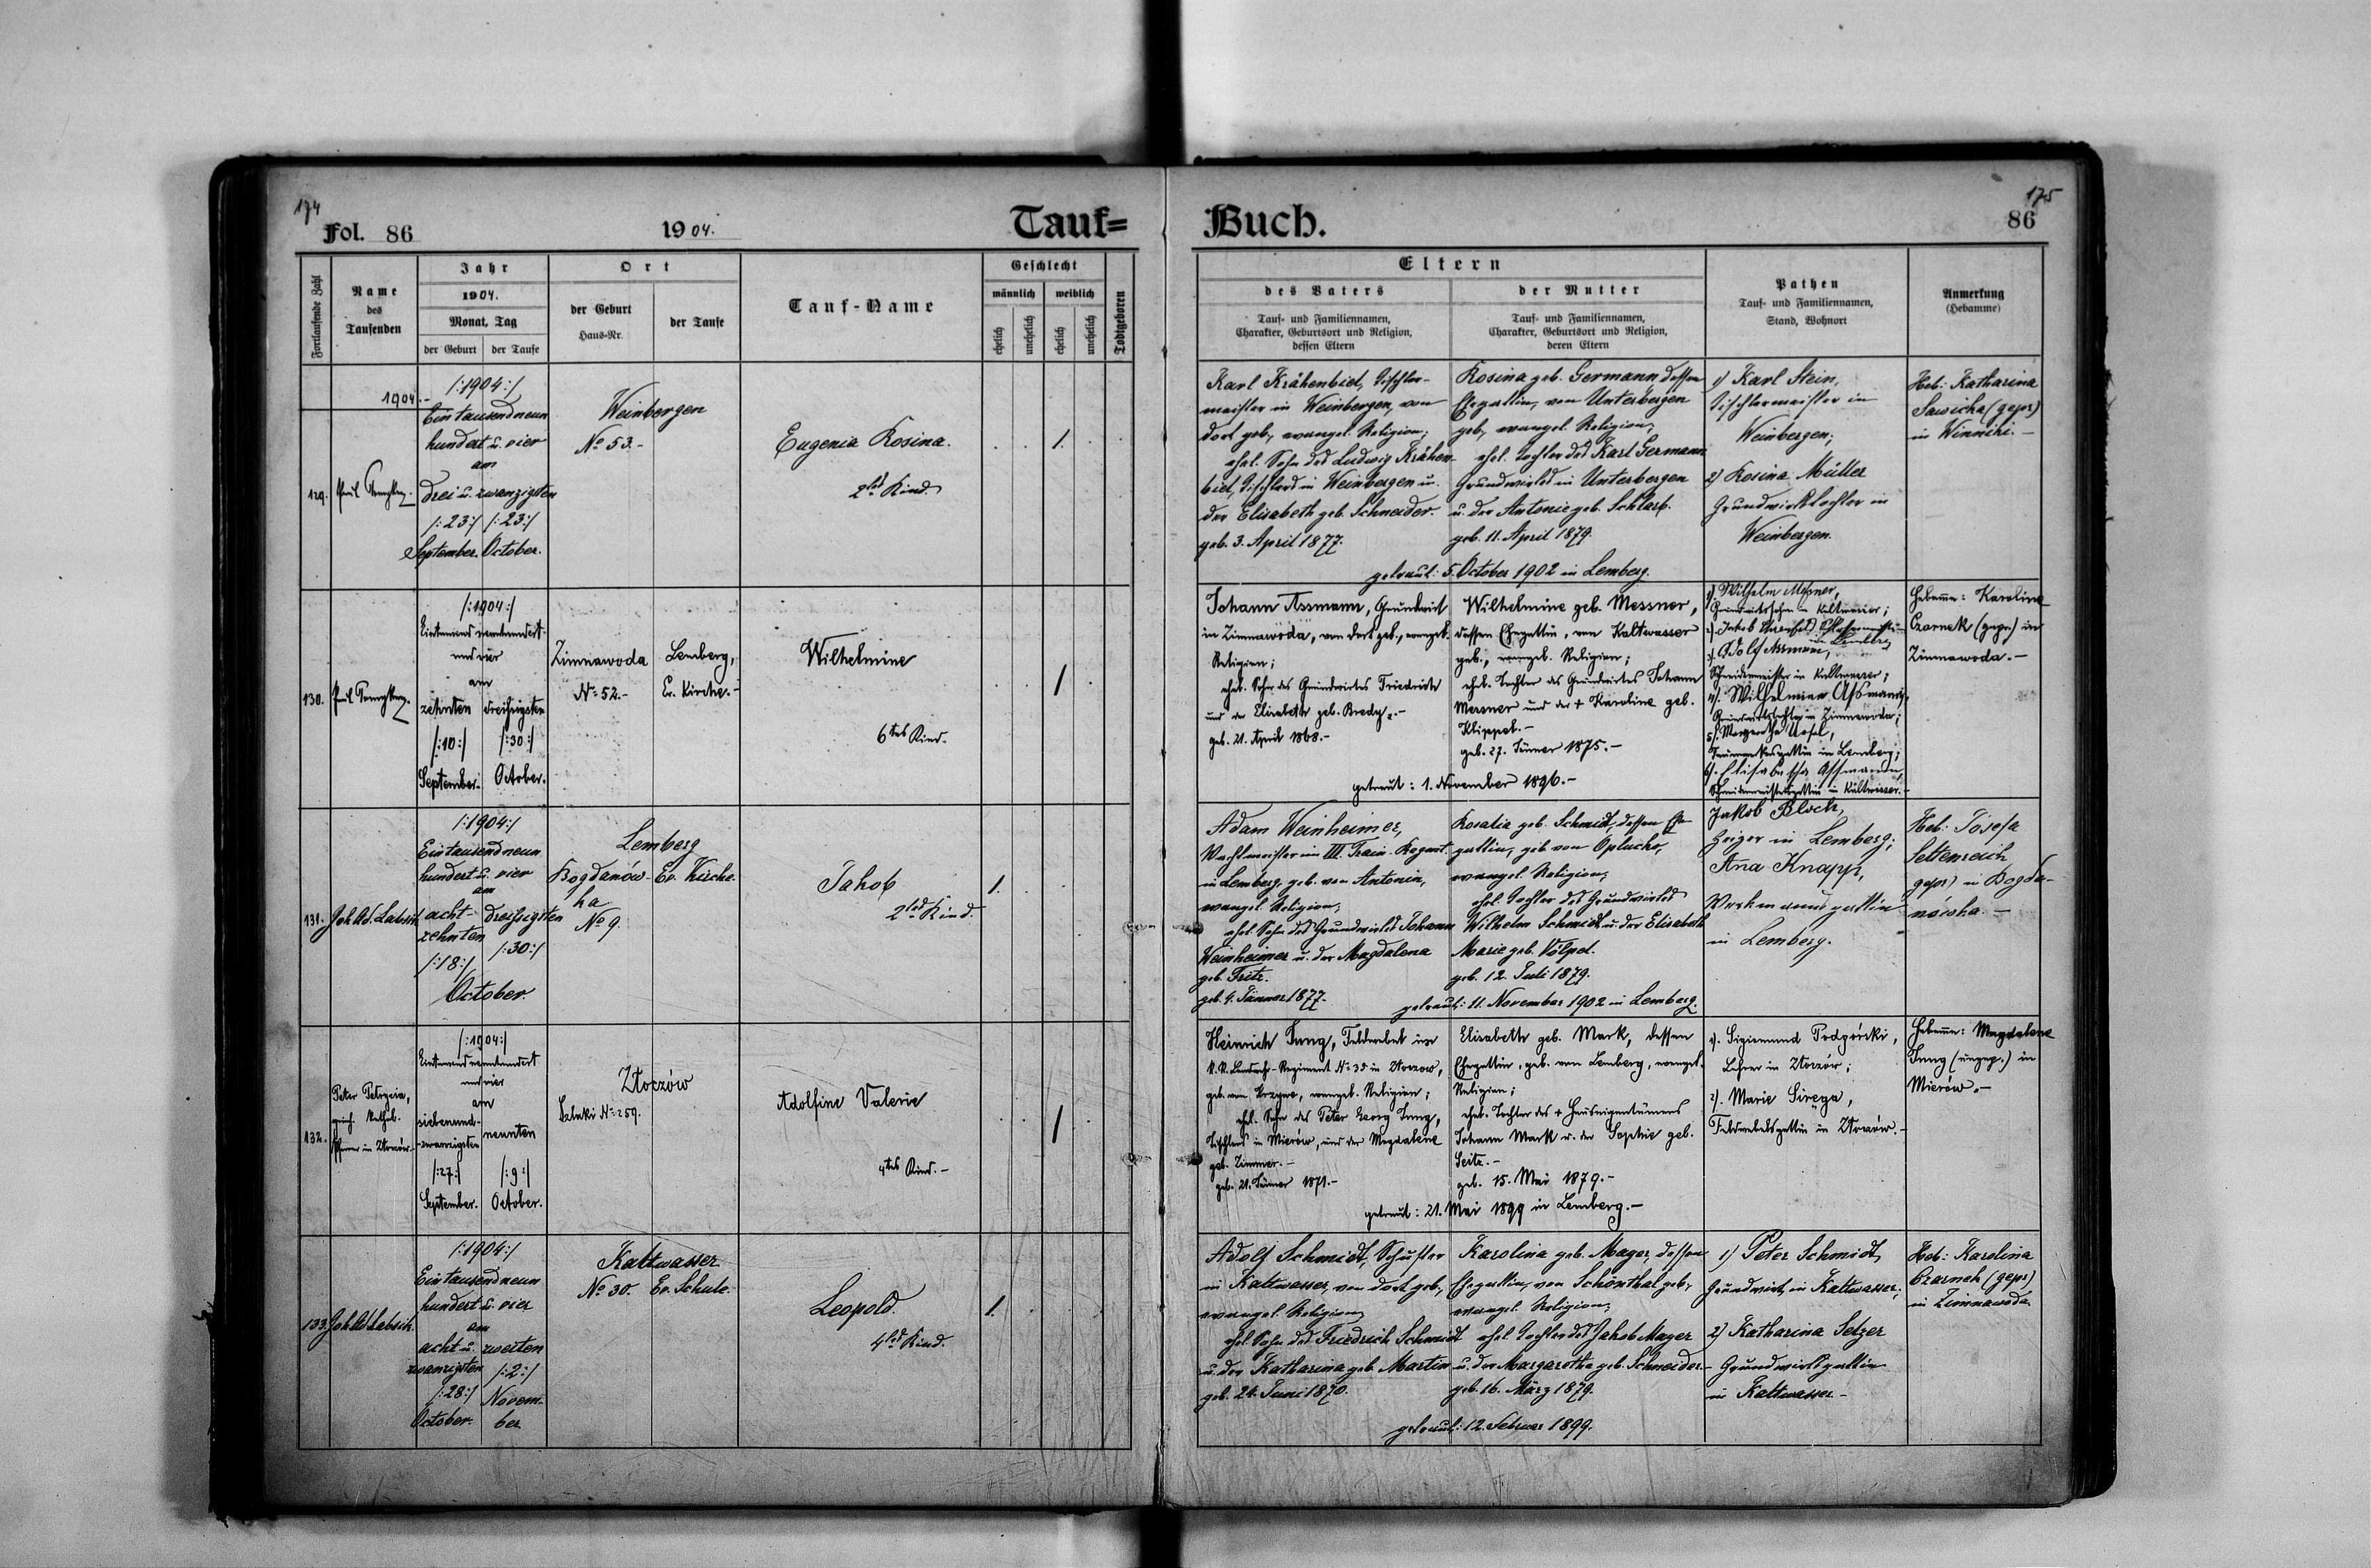 174
Fol. 86
1904.
Tauf=
Fortlaufende Zahl
Name
des
Taufenden
Jahr
1904.
Monat, Tag
der Geburt
der Taufe
Ort
der Geburt
Haus-Nr.
der Taufe
Tauf-Name
Geschlecht
männlich
weiblich
ehelich
unehelich
ehelich
unehelich
Todtgeboren
1904.-
129.
/:1904:/
Ein tausend neun
hundert u. vier
am
drei u. zwanzigsten
/:23:/ /:23:/
September. October.
Weinbergen
No 53.-
Eugenia Rosina.
2tes Kind.
1.
130.
/:1904:/
Eintausend neunhundert
und vier
am
zehnten dreißigsten
/:10:/ /:30:/
September. October.
Zimnawoda
No 52.-
Lemberg,
Ev. Kirche.-
Wilhelmine
6tes Kind.
1
131. Joh. Ad. Labsik.
/:1904:/
Ein tausend neun
hundert u. vier
am
acht- dreißigsten
zehnten /:30:/
/:18:/
October.
Lemberg
Bogdanów- Ev. Kirche.
ka
No 9.
Jakob
2tes Kind.
1.
132.
Peter
Pfarrer in Złoczów.-
/:1904:/
Eintausend neunhundert
und vier
am
siebenund-
zwanzigsten neunten
/:27:/ /:9:/
September. October.
Złoczów
Szlaki No 259.
Adolfine Valerie
4tes Kind.-
1
133. Joh. Ad. Labsik.
/:1904:/
Ein tausend neun
hundert u. vier
am
acht u. zweiten
zwanzigsten /:2:/
/:28:/ Novem-
October. ber
Kaltwasser
No 30. Ev. Schule.
Leopold.
4tes Kind.
1.
175
Buch.
86
Eltern
des Vaters
Tauf- und Familiennamen,
Charakter, Geburtsort und Religion,
dessen Eltern
der Mutter
Tauf- und Familiennamen,
Charakter, Geburtsort und Religion,
deren Eltern
Pathen
Tauf- und Familiennamen,
Stand, Wohnort
Anmerkung
(Hebamme)
Karl Krähenbiel, Tischler-
meister in Weinbergen, von
dort geb., evangel. Religion;
ehel. Sohn des Ludwig Krähen-
biel, Tischlers in Weinbergen u.
der Elisabeth geb. Schneider.
geb. 3. April 1877.
Rosina geb. Germann dessen
Ehegattin, von Unterbergen
geb., evangel. Religion;
ehel. Tochter des Karl Germann
Grundwirtes in Unterbergen
u. der Antonie geb. Schlarb.
geb. 11. April 1879.
getraut: 5. October 1902 in Lemberg.
1) Karl Stein,
Tischlermeister in
Weinbergen;
2) Rosina Müller
Grundwirtstochter in
Weinbergen.
Heb: Katharina
Sawicka (gepr)
in Winniki.-
Johann Assmann, Grundwirt
in Zimnawoda, von dort geb., evangel.
Religion;
ehel. Sohn des Grundwirtes Friedrich
und der Elisabeth geb. Bredy.-
geb. 21. April 1868.-
Wilhelmine geb. Messner,
dessen Ehegattin, von Kaltwasser
geb., evangel. Religion;
ehel. Tochter des Grundwirtes Johann
Messner und der + Karoline geb.
Klippel.-
geb. 27. Jänner 1875.-
getraut: 1. November 1896.-
1) Wilhelm Messner,
Grundwirtssohn in Kaltwasser;
2) Jakob
in Lemberg
3. Adolf Assmann,
Schmiedemeister in Kaltwasser;
4). Wilhelmine Assmann,
Grundwirtstochter in Zimnawoda;
5). Margaretha
in Lemberg;
6). Elisabetha Assmann,
Schmiedemeistersgattin in Kaltwasser.-
Hebamme: Karoline
Czarnek (gepr.) in
Zimnawoda.-
Adam Weinheimer,
Wachtmeister im III. Train-Regmt.
in Lemberg, geb. von Antonin,
evangel. Religion;
ehel. Sohn des Grundwirtes Johann
Weinheimer u. der Magdalena
geb. Fritz.
geb. 4. Jänner 1877.
Rosalia geb. Schmidt, dessen Ehe-
gattin, geb. von Oplucko,
evangel. Religion;
ehel. Tochter des Grundwirtes
Wilhelm Schmidt u. der Elisabeth
Marie geb. Völpel.
geb. 12. Juli 1879.
getraut: 11. November 1902 in Lemberg.
Jakob Bloch,
Heizer in Lemberg;
Ana Knapp,
Werkmannsgattin
in Lemberg.
Heb: Josefa
Settenreich
gepr) in Bogda-
nówka.-
Heinrich Jung, Feldwebel im
k.k. Landwehr-Regiment No 35 in Złoczow,
evangel. Religion;
ehel. Sohn des Peter Georg Jung,
Tischlers in Mierów, und der Magdalene
geb. Zimmer.-
geb. 21. Jänner 1871.-
Elisabeth geb. Mark, dessen
Ehegattin, geb. von Lemberg, evangel.
Religion;
ehel. Tochter des + Hauseigentümers
Johann Mark u. der Sophie geb.
Seitz.-
geb. 15. Mai 1879.-
getraut: 21. Mai 1899 in Lemberg.-
1). Sigismund Podgórski,
Lehrer in Złoczów;
2). Marie Sirega,
Feldwebelsgattin in Złoczów.-
Hebamme: Magdalene
Jung (ungepr.) in
Mierów.-
Adolf Schmidt, Schuster
in Kaltwasser, von dort geb.,
evangel. Religion;
ehel. Sohn des Friedrich Schmidt
u. der Katharina geb. Martin
geb. 24. Juni 1870.
Karolina geb. Mayer, dessen
Ehegattin, von Schönthal geb.,
evangel. Religion;
ehel. Tochter des Jakob Mayer
u. der Margaretha geb. Schneider.-
geb. 16. März 1879.
getraut: 12. Februar 1899.
1) Peter Schmidt
Grundwirt, in Kaltwasser;
2) Katharina Setzer
Grundwirtsgattin
in Kaltwasser.-
Heb: Karolina
Czarnek (gepr)
in Zimnawoda.